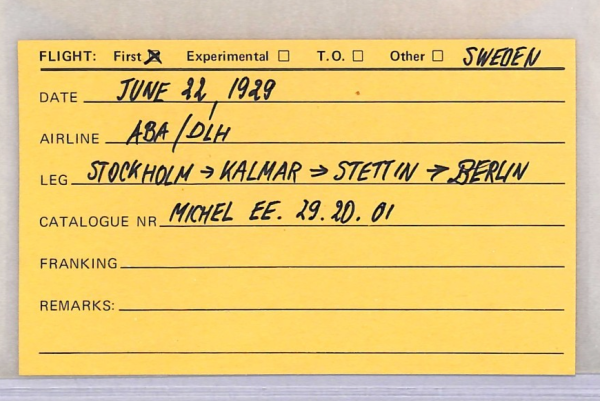 FLIGHT: First ☒ Experimental ☐ T.O. ☐ Other ☐ SWEDEN
DATE JUNE 22, 1929
AIRLINE ABA/DLH
LEG STOCKHOLM → KALMAR → STETTIN → BERLIN
CATALOGUE NR MICHEL EE. 29.20.01
FRANKING
REMARKS: